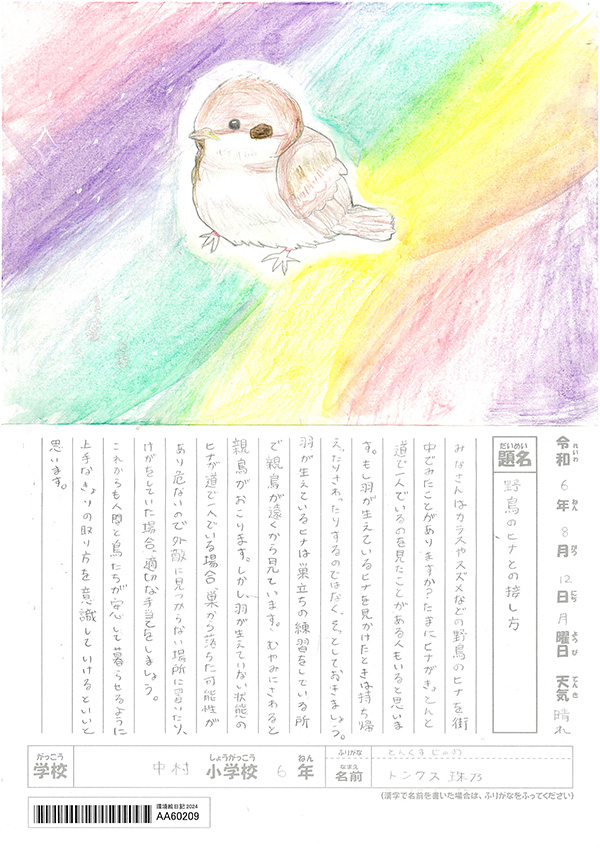 令和6年8月12日月曜日 天気 晴れ
れいわ ねん がつ にち ようび てんき
だいめい
題名 野鳥のヒナとの接し方
みなさんはカラスやスズメなどの野鳥のヒナを街
中でみたことがありますか？たまにヒナがきょとんと
道で一人でいるのを見たことがある人もいると思いま
す。もし羽が生えているヒナを見かけたときは持ち帰
えったりさわったりするのではなく、そっとしておきましょう。
羽が生えているヒナは巣立ちの練習をしている所
で親鳥が遠くから見ています。むやみにさわると
親鳥がおこります。しかし、羽が生えていない状態の
ヒナが道で一人でいる場合、巣から落ちた可能性が
あり危ないので外敵に見つからない場所に置いたり、
けがをしていた場合、適切な手当てをしましょう。
これからも人間と鳥たちが安心して暮らせるように
上手なきょりの取り方を意識していけるといいと
思います。
がっこう しょうがっこう ねん
学校 中村 小学校 6年
ふりがな とんくす
なまえ
名前 トンクス
(漢字で名前を書いた場合は、ふりがなをふってください)
環境絵日記2024
AA60209